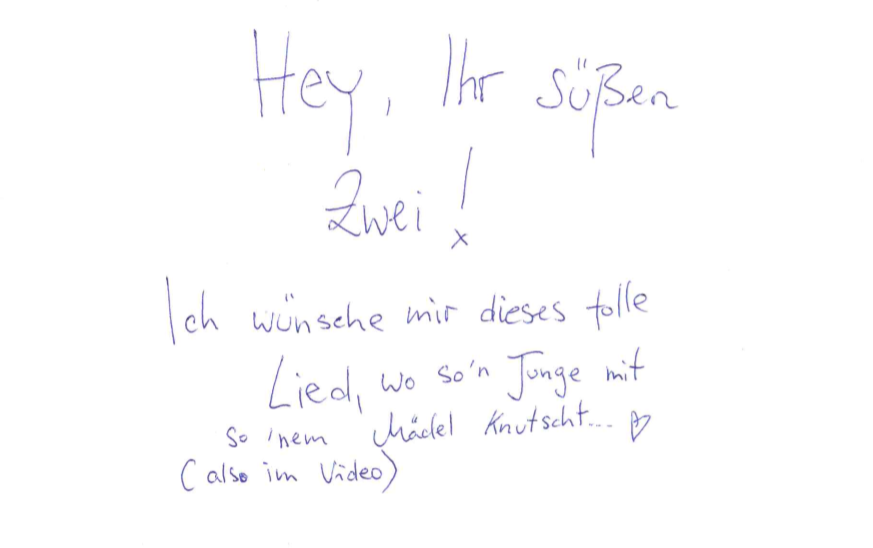 Hey, Ihr süßen
Zwei!
Ich wünsche mir dieses tolle
Lied, wo so'n Junge mit
so'nem Mädel knutscht... ♡
(also im Video)